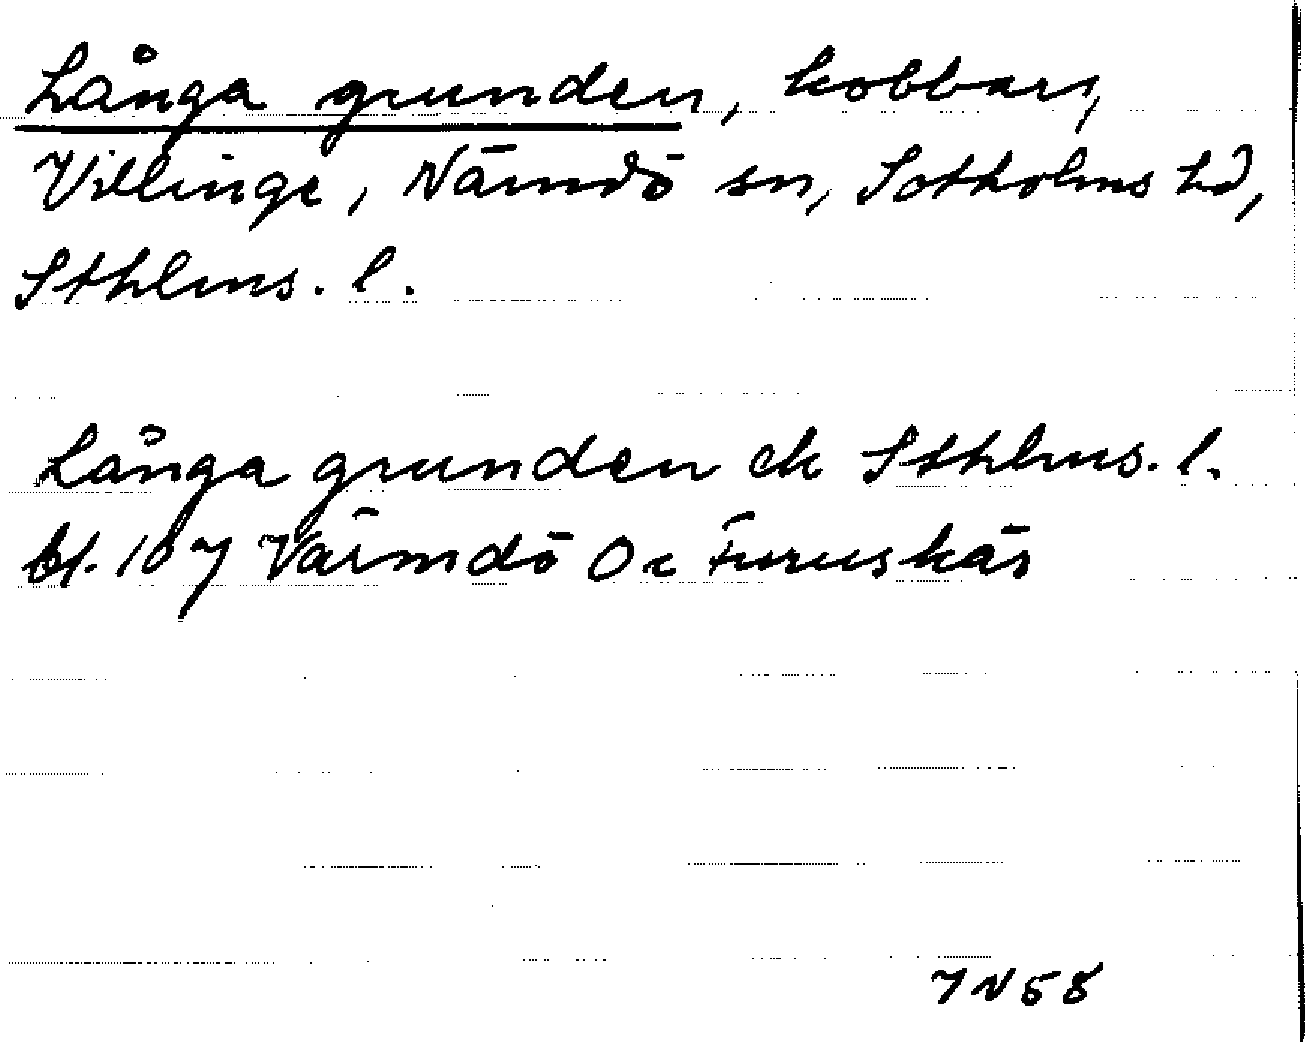 Långa grunden, kobbar,
Villinge, Nämdö sn, Sotholms hd,
Sthlms. l.
Långa grunden ek Sthlms. l.
bl. 107 Värmdö Oc Furuskär
7N58